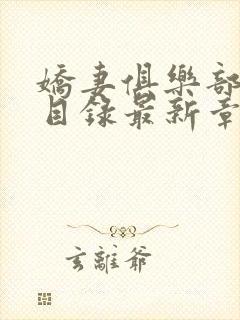 嬌妻俱樂部
目錄最新章
玄離爺